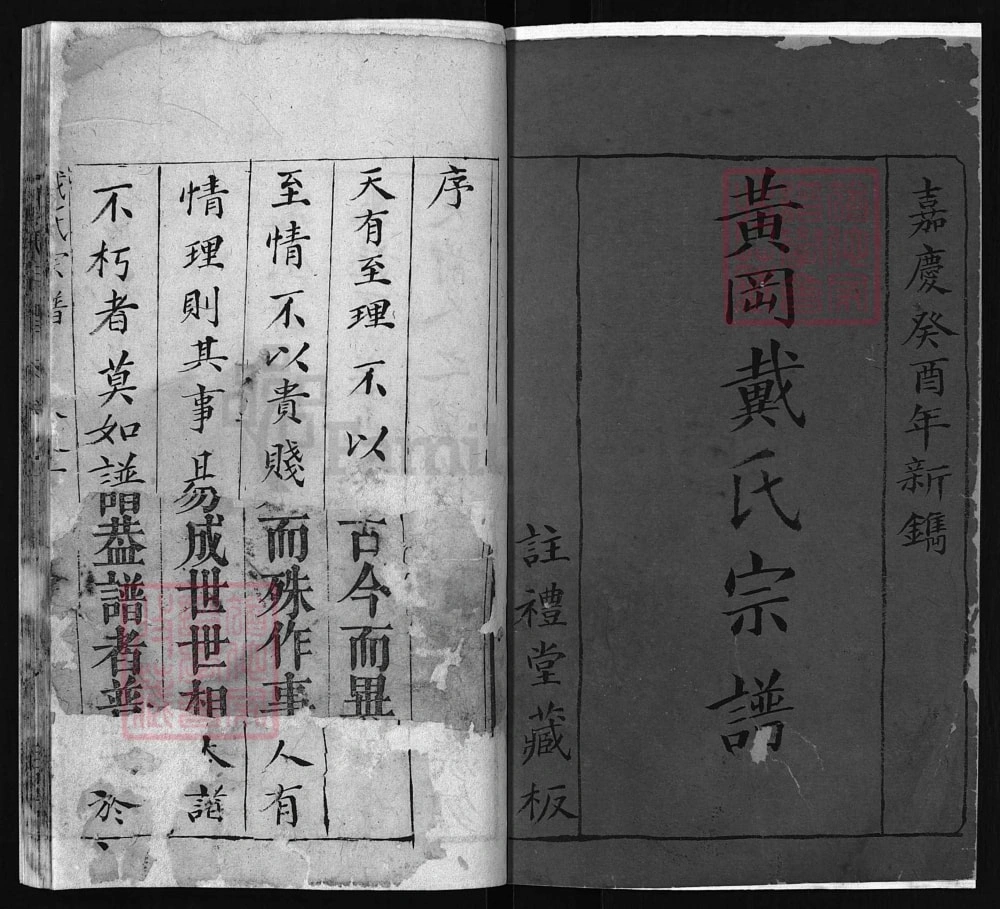 嘉慶癸酉年新鐫
黃岡戴氏宗譜
註禮堂藏板
序
天有至理不以古今而異
至情不以貴賤而殊作事人有
情理則其事易成世世相
不朽者莫如譜葢譜者普於